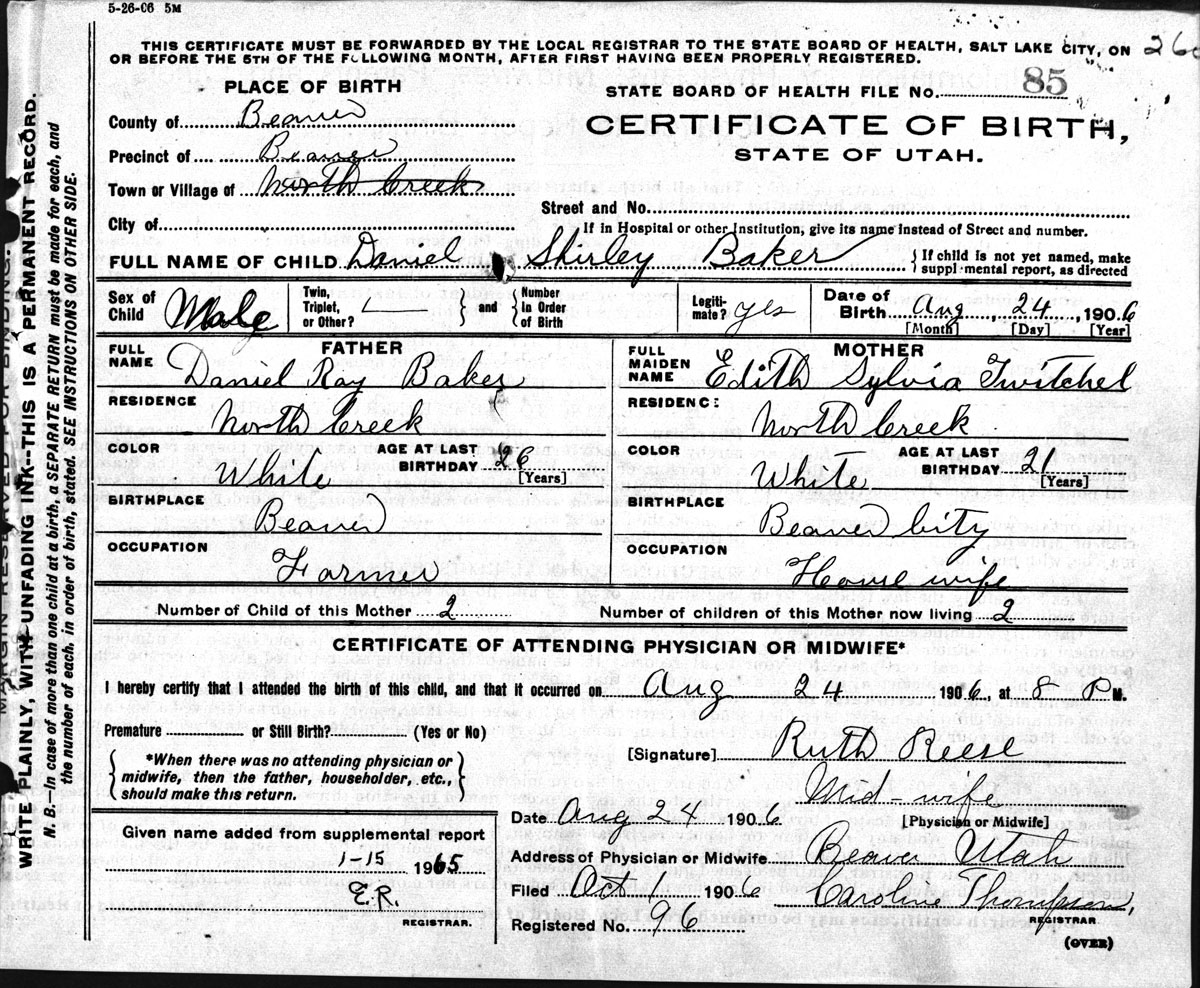 5-26-06 5M
THIS CERTIFICATE MUST BE FORWARDED BY THE LOCAL REGISTRAR TO THE STATE BOARD OF HEALTH, SALT LAKE CITY, ON
OR BEFORE THE 5TH OF THE FOLLOWING MONTH, AFTER FIRST HAVING BEEN PROPERLY REGISTERED.
PLACE OF BIRTH
STATE BOARD OF HEALTH FILE No. 85
County of Beaver
CERTIFICATE OF BIRTH,
Precinct of Beaver
STATE OF UTAH.
Town or Village of North Creek
Street and No.
City of
If in Hospital or other Institution, give its name instead of Street and number.
FULL NAME OF CHILD Daniel Shirley Baker {If child is not yet named, make supplmental report, as directed
Sex of Child Male Twin, Triplet, or Other? } and { Number In Order of Birth Legiti-mate? yes Date of Birth Aug 24, 1906
[Month] [Day] [Year]
FATHER
MOTHER
FULL NAME Daniel Ray Baker
FULL MAIDEN NAME Edith Sylvia Twitchel
RESIDENCE North Creek
RESIDENCE North Creek
COLOR White AGE AT LAST BIRTHDAY 26 [Years]
COLOR White AGE AT LAST BIRTHDAY 21 [Years]
BIRTHPLACE Beaver
BIRTHPLACE Beaver City
OCCUPATION Farmer
OCCUPATION House wife
Number of Child of this Mother 2
Number of children of this Mother now living 2
CERTIFICATE OF ATTENDING PHYSICIAN OR MIDWIFE*
I hereby certify that I attended the birth of this child, and that it occurred on Aug 24 1906, at 8 P M.
Premature or Still Birth? (Yes or No)
[Signature] Ruth Reese
{ *When there was no attending physician or midwife, then the father, householder, etc., should make this return. }
Mid-wife
[Physician or Midwife]
Date Aug 24 1906
Given name added from supplemental report
1-15 1965
E.R.
REGISTRAR.
Address of Physician or Midwife Beaver Utah
Filed Oct 1 1906 Caroline Thompson,
REGISTRAR
Registered No. 96
(OVER)
WRITE PLAINLY, WITH UNFADING INK--THIS IS A PERMANENT RECORD.
N. B.—In case of more than one child at a birth, a SEPARATE RETURN must be made for each, and
the number of each, in order of birth, stated. SEE INSTRUCTIONS ON OTHER SIDE.